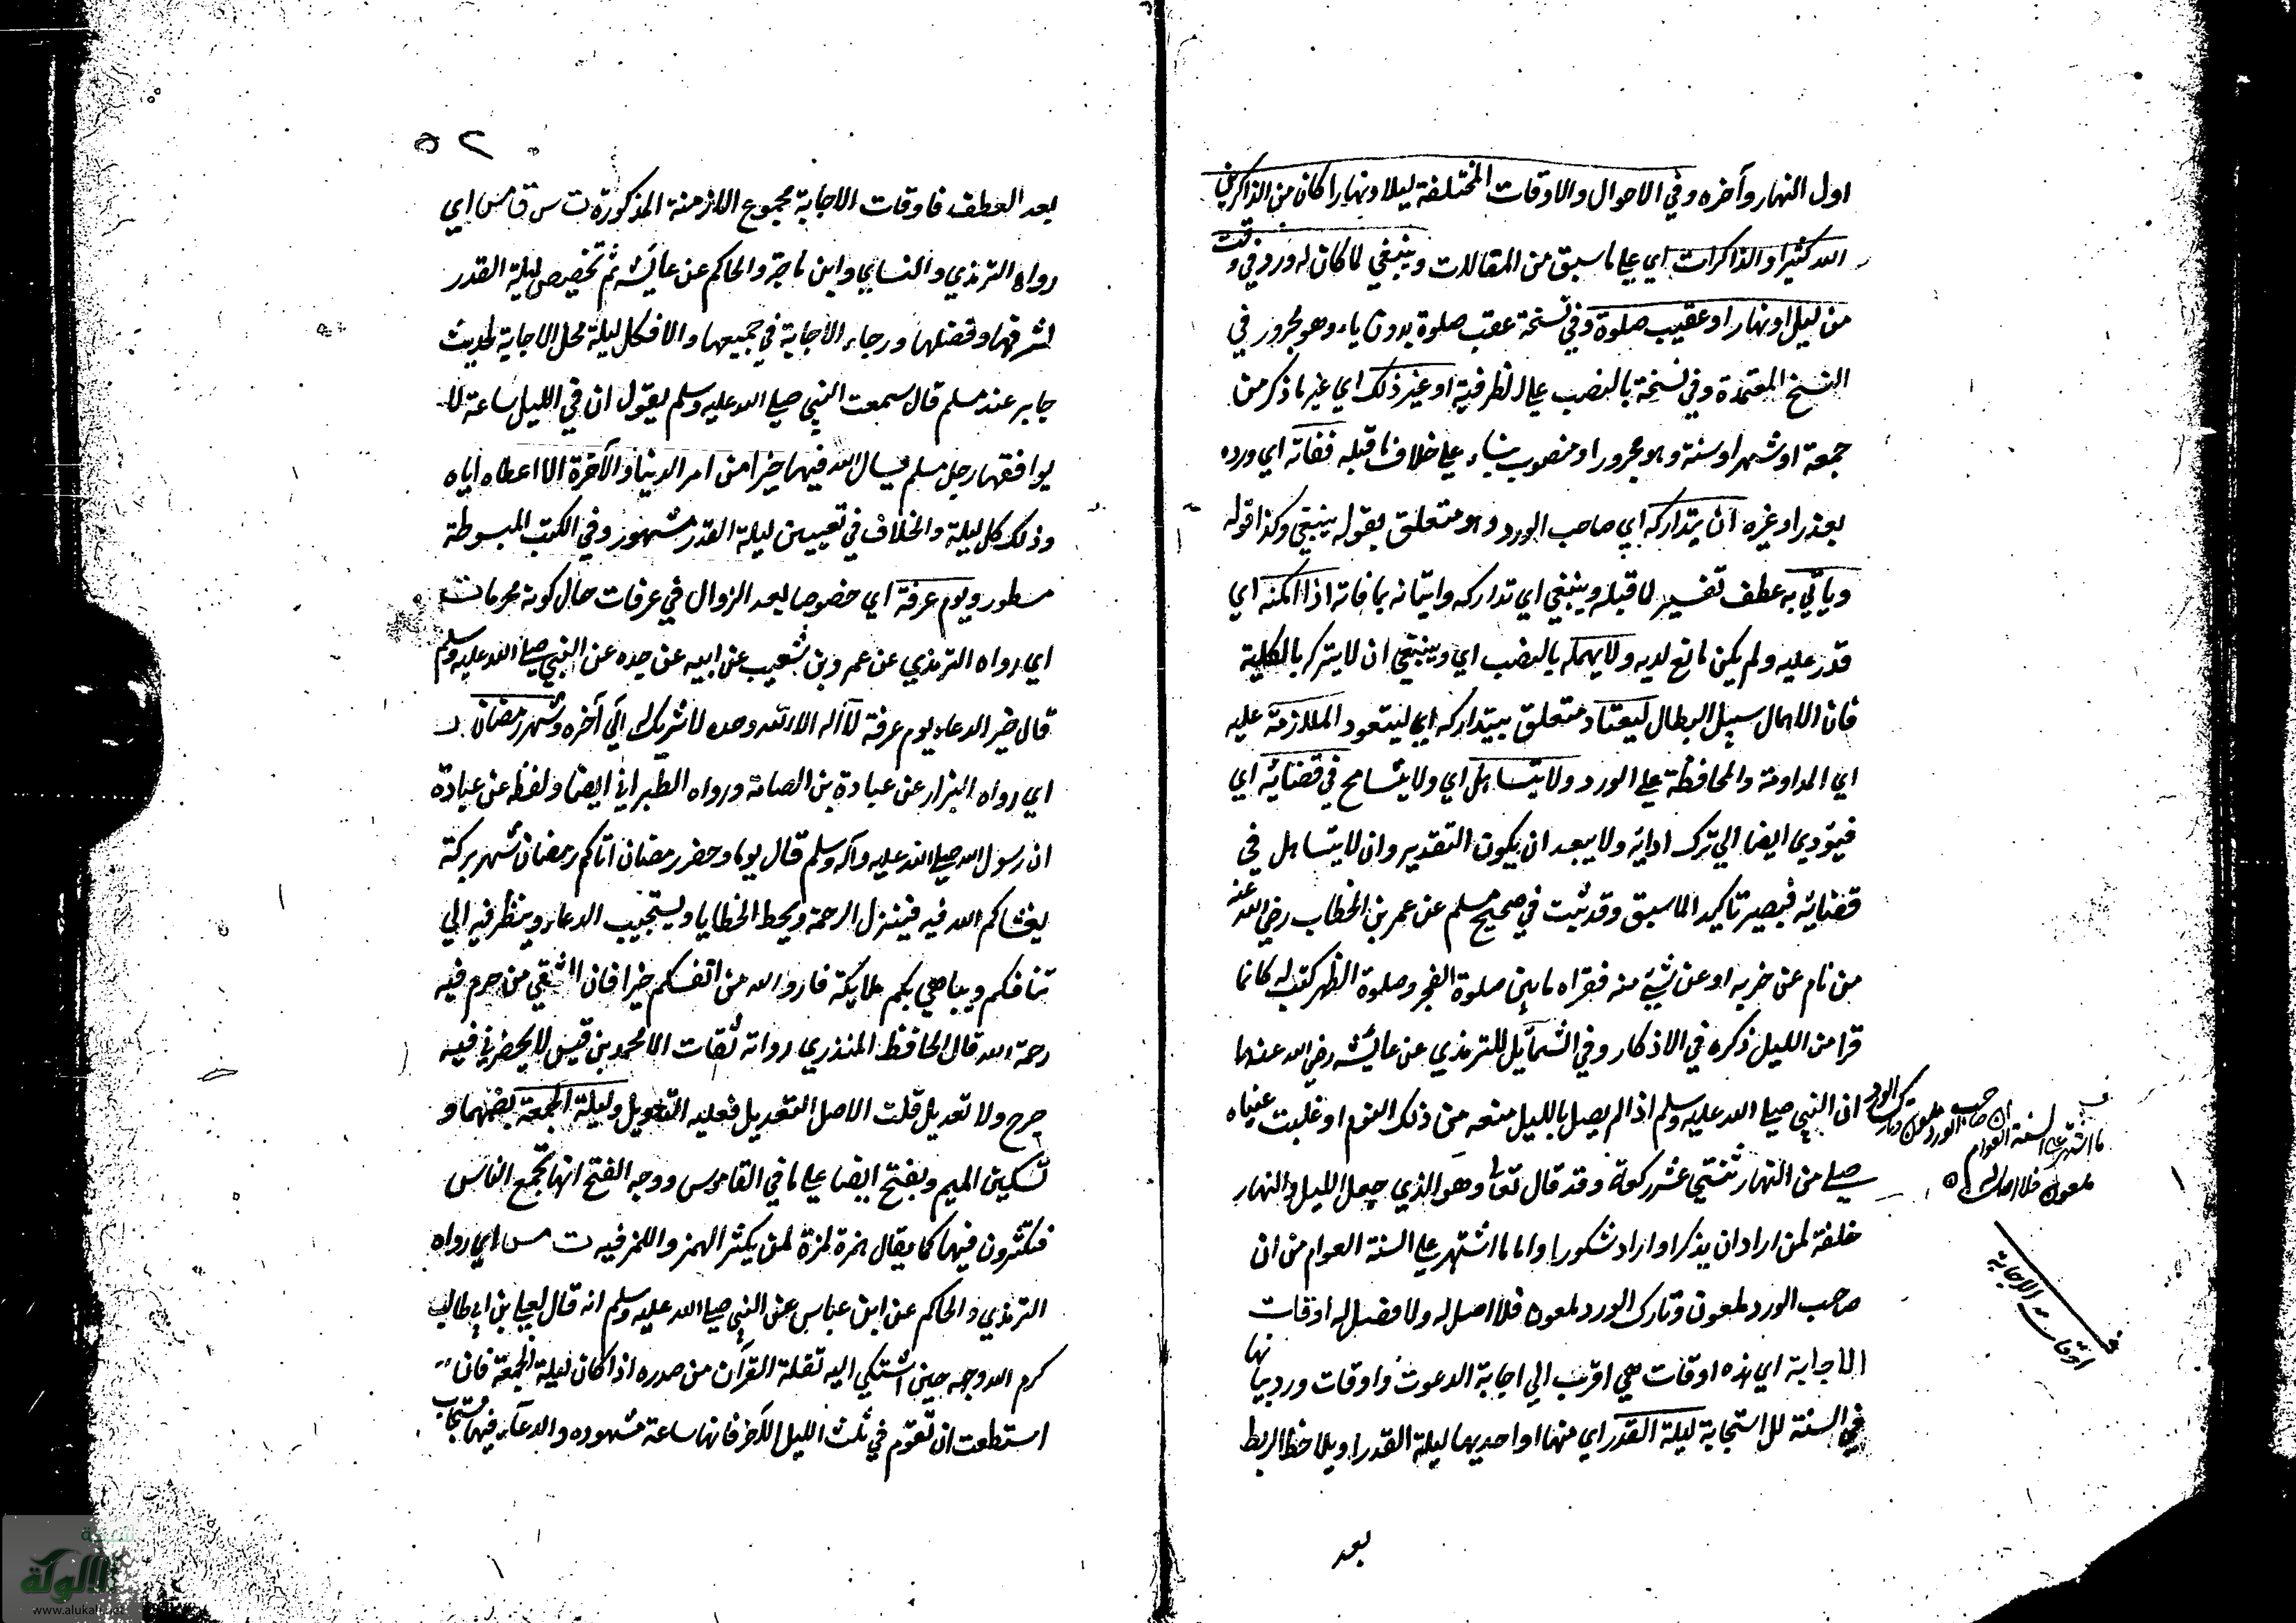 اول النهار وآخره وفي الاحوال والاوقات المختلفة ليلا ونهارا كان من الذاكرين
الله كثيرا والذاكرات اي على ما سبق من المقالات وينبغي لمن كان له ورد في وقت
من ليل او نهار او عقيب صلوة وفي نسخة عقب صلوة بدون ياء وهو مجرور في
النسخ المعتمدة وفي نسخة بالنصب على الظرفية او غير ذلك اي غير ما ذكر من
جمعة او شهر او سنة وهو مجرور او منصوب بناء على خلاف ما قبله ففاته اي ورده
بعذر او غيره ان يتداركه اي صاحب الورد وهو متعلق بقوله ينبغي وكذا قوله
وياتي به عطف تفسير لما قبله وينبغي اي تداركه واتيانه بما فاته اذا امكنه اي
قدر عليه ولم يكن مانع لديه ولا يهمله بالنصب اي وينبغي ان لا يتركه بالكلية
فان الاهمال سبيل البطال ليعتاد متعلق بيتداركه اي ليتعود الملازمة عليه
اي المداومة والمحافظة على الورد ولا يتساهل اي ولا يتسامح في قضائه اي
فيؤدي ايضا الي ترك ادائه ولا يبعد ان يكون التقدير وان لا يتساهل في
قضائه فيصير تاكيدا لما سبق وقد ثبت في صحيح مسلم عن عمر بن الخطاب رضي الله عنه
من نام عن حزبه او عن شيئ منه فقراه ما بين صلوة الفجر وصلوة الظهر كتب له كانما
قرا من الليل ذكره في الاذكار وفي الشمائل للترمذي عن عايشه رضي الله عنها
ان النبي صلى الله عليه وسلم اذا لم يصل بالليل منعه من ذلك النوم او غلبت عيناه
صلى من النهار ثنتي عشر ركعة وقد قال تعا وهو الذي جعل الليل والنهار
خلفة لمن اراد ان يذكر او اراد شكورا واما ما اشتهر على السنة العوام من ان
صاحب الورد ملعون وتارك الورد ملعون فلا اصل له ولا فضل له اوقات
الاجابة اي هذه اوقات هي اقرب الي اجابة الدعوت واوقات ورد بيانها
في السنة للاستجابة ليلة القدر اي منها او احديها ليلة القدر او يلاحظ الربط
بعد
ما اشتهر على السنة العوام
ان صاحب الورد ملعون وتارك الورد
ملعون فلا اصل له
اوقات الاجابة
٥٢
بعد العطف فاوقات الاجابة مجموع الازمنة المذكورة ت س ق مس اي
رواه الترمذي والنسايي وابن ماجة والحاكم عن عايشه ثم تخصيص ليلة القدر
لشرفها وفضلها ورجاء الاجابة في جميعها والا فكل ليلة محل الاجابة لحديث
جابر عند مسلم قال سمعت النبي صلى الله عليه وسلم يقول ان في الليل ساعة لا
يوافقها رجل مسلم يسال الله فيها خيرا من امر الدنيا والآخرة الا اعطاه اياه
وذلك كل ليلة والخلاف في تعيين ليلة القدر مشهور وفي الكتب المبسوطة
مسطور ويوم عرفة اي خصوصا بعد الزوال في عرفات حال كونه محرما ت
اي رواه الترمذي عن عمرو بن شعيب عن ابيه عن جده عن النبي صلى الله عليه وسلم
قال خير الدعاء يوم عرفة لا اله الا الله وحده لا شريك له الي آخره وشهر رمضان ر
اي رواه البزار عن عبادة بن الصامت ورواه الطبراني ايضا ولفظه عن عبادة
ان رسول الله صلى الله عليه وآله وسلم قال يوما وحضر رمضان اتاكم رمضان شهر بركة
يغشاكم الله فيه فينزل الرحمة ويحط الخطايا ويستجيب الدعاء وينظر فيه الي
تنافسكم ويباهي بكم ملايكته فاروا الله من انفسكم خيرا فان الشقي من حرم فيه
رحمة الله قال الحافظ المنذري رواته ثقات الا محمد بن قيس لا يحضرني فيه
جرح ولا تعديل قلت الاصل التعديل فعليه التعويل وليلة الجمعة بضمها و
تسكين الميم وبفتح ايضا على ما في القاموس ووجه الفتح انها تجمع الناس
فيكثرون فيها كما يقال همزة لمزة لمن يكثر الهمز واللمز فيه ت مس اي رواه
الترمذي والحاكم عن ابن عباس عن النبي صلى الله عليه وسلم انه قال لعلي بن ابي طالب
كرم الله وجهه حين اشتكي اليه تفلة القرآن من صدره اذا كان ليلة الجمعة فان
استطعت ان تقوم في ثلث الليل الآخر فانها ساعة مشهوده والدعاء فيها مستجاب
شبكة
الالوكة
www.alukah.net